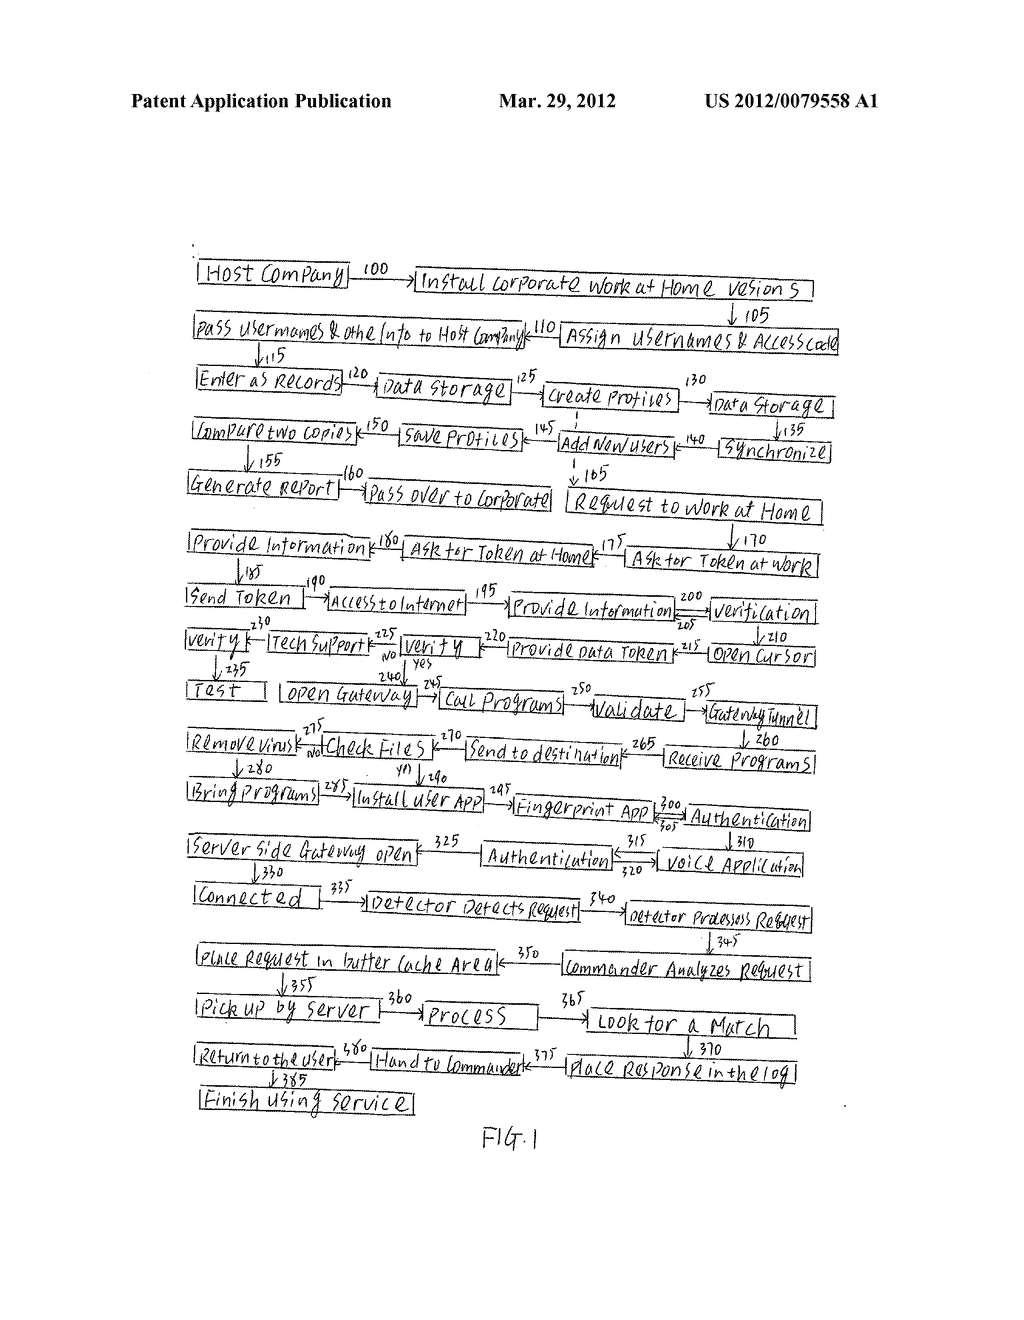 Patent Application Publication Mar. 29, 2012 US 2012/0079558 A1
Host Company 100 Install Corporate Work at Home Vesions
105
Pass Usernames & othe Info to Host Company 110 Assign Usernames & Access Code
115
Enter as Records 120 Data Storage 125 Create Profiles 130 Data Storage
135
Compare two Copies 150 Save Profiles 145 Add New Users 140 Synchronize
155 165
Generate Report 160 Pass over to Corporate Request to Work at Home
170
Provide Information 180 Ask for Token at Home 175 Ask for Token at Work
185
Send Token 190 Access to Internet 195 Provide Information 200 205 Verification
210
Verify 230 Tech Support 225 NO Verify 220 Provide Data Token 215 Open Cursor
235 240 Yes
Test Open Gateway 245 Call Programs 250 Validate 255 Gateway Tunnel
260
Remove Virus 275 NO Check Files 270 Send to destination 265 Receive Programs
280 Yes 290
Bring Programs 285 Install User APP 295 Fingerprint App 300 305 Authentication
310
Server Side Gateway open 325 Authentication 315 320 Voice Application
330
Connected 335 Detector Detects Request 340 Detector Processess Request
345
Place Request in buffer Cache Area 350 Commander Analyzes Request
355
Pick up by Server 360 Process 365 Look for a Match
370
Return to the user 380 Hand to Commander 375 Place Response in the log
385
Finish Using Service
FIG. 1